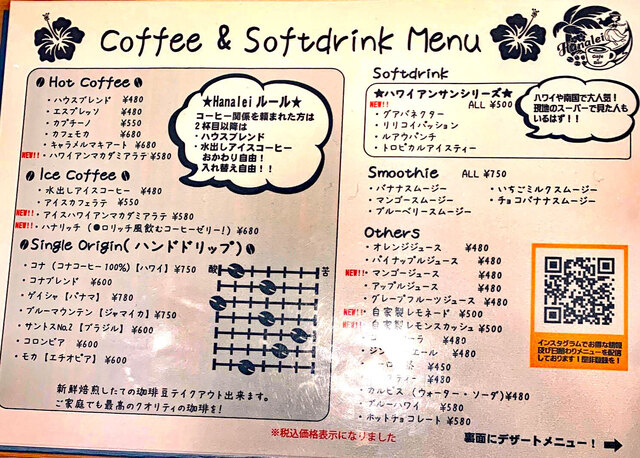 Coffee & Softdrink Menu
Hanalei
Hot Coffee
・ハウスブレンド ¥480
・エスプレッソ ¥480
・カプチーノ ¥550
・カフェモカ ¥680
・キャラメルマキアート ¥680
NEW!! ・ハワイアンマカダミアラテ ¥580
★Hanalei ルール★
コーヒー関係を頼まれた方は
2杯目以降は
・ハウスブレンド
・水出しアイスコーヒー
おかわり自由!
入れ替え自由!!
Ice Coffee
・水出しアイスコーヒー ¥480
・アイスカフェラテ ¥550
NEW!! ・アイスハワイアンマカダミアラテ ¥580
NEW!! ・ハナリッチ (●ロリッチ風飲むコーヒーゼリー!) ¥680
Single Origin(ハンドドリップ)
酸 苦
・コナ (コナコーヒー100%)【ハワイ】 ¥750
・コナブレンド ¥600
・ゲイシャ【パナマ】 ¥780
・ブルーマウンテン【ジャマイカ】 ¥750
・サントスNo.2【ブラジル】 ¥600
・コロンビア ¥600
・モカ【エチオピア】 ¥600
新鮮焙煎したての珈琲豆テイクアウト出来ます。
ご家庭でも最高のクオリティの珈琲を!
Softdrink
★ハワイアンサンシリーズ★
NEW!! ALL ¥500
・グアバネクター
・リリコイパッション
・ルアウパンチ
・トロピカルアイスティー
ハワイや南国で大人気!
現地のスーパーで見た人も
いるはず!!
Smoothie ALL ¥750
・バナナスムージー ・いちごミルクスムージー
・マンゴースムージー ・チョコバナナスムージー
・ブルーベリースムージー
Others
・オレンジジュース ¥480
・パイナップルジュース ¥480
NEW!! ・マンゴージュース ¥480
・アップルジュース ¥480
・グレープフルーツジュース ¥480
NEW!! ・自家製レモネード ¥500
NEW!! ・自家製レモンスカッシュ ¥500
¥480
エール ¥480
¥450
ティー ¥480
・カルピス (ウォーター・ソーダ)¥480
・ブルーハワイ ¥580
・ホットチョコレート ¥580
インスタグラムでお得な情報
及び日替わりメニューを配信
しております!是非登録を!
※税込価格表示になりました
裏面にデザートメニュー!